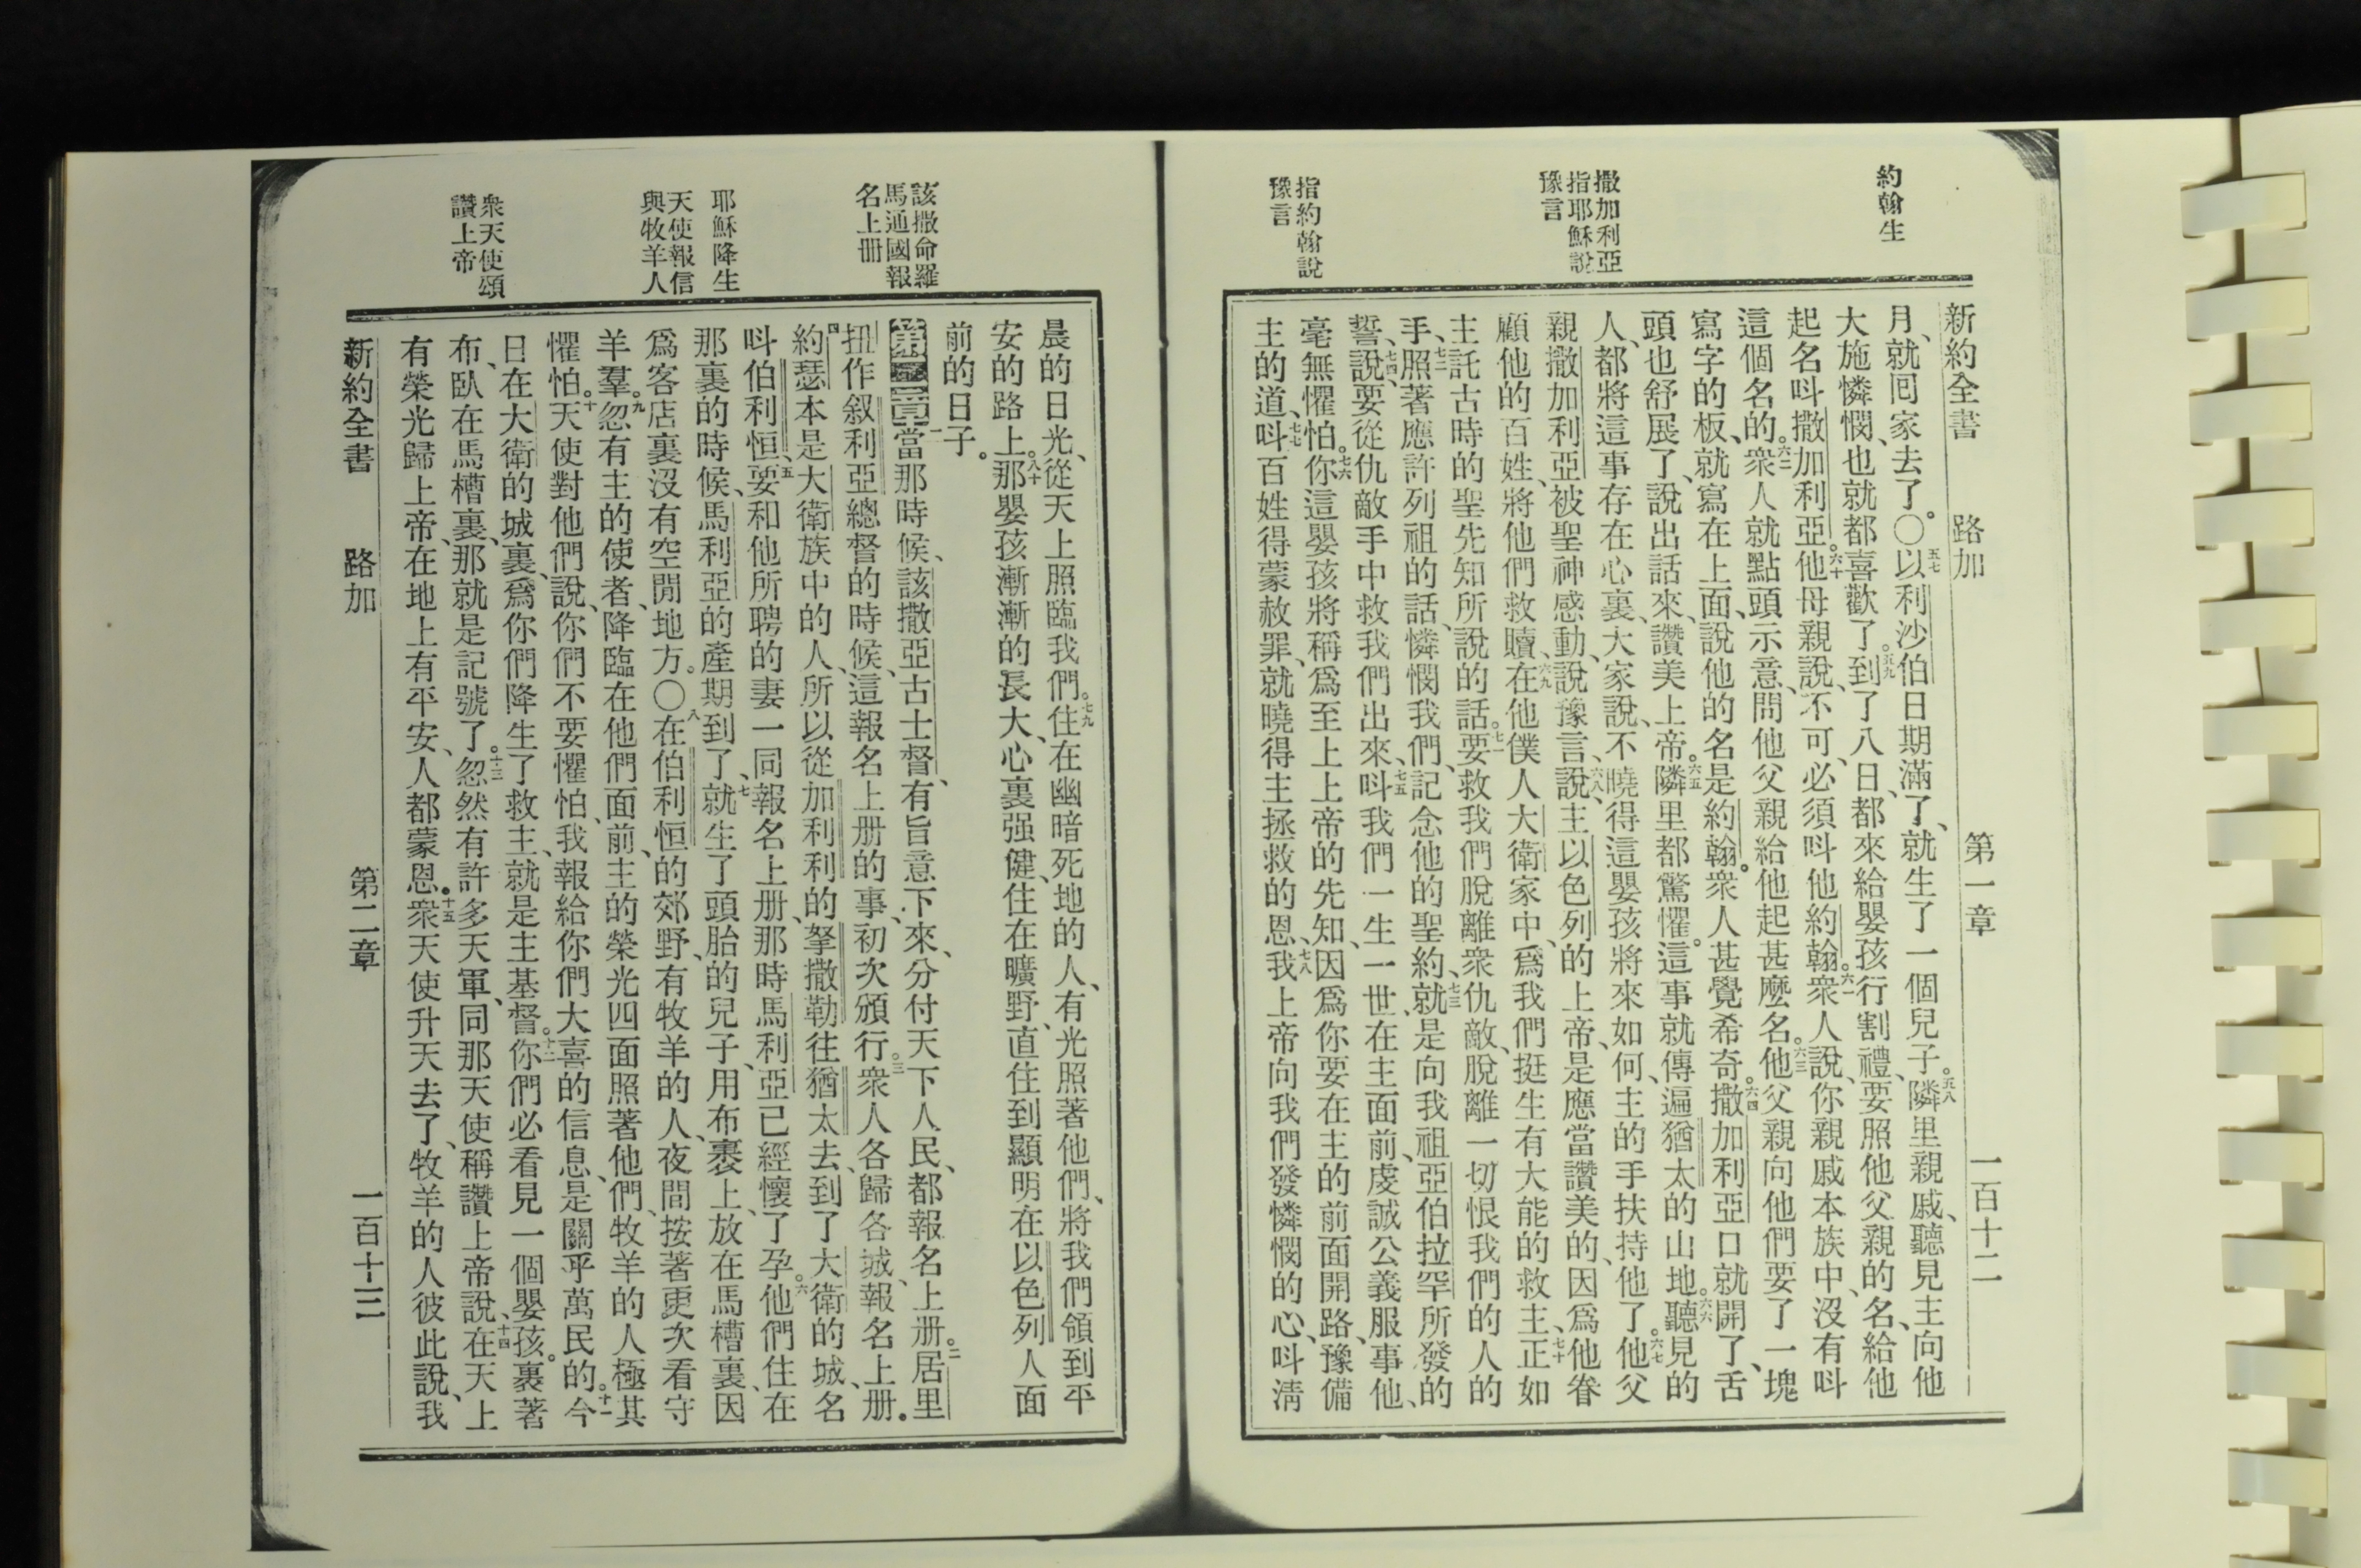 約翰生
撒加利亞
指耶穌說
豫言
指約翰說
豫言
新約全書 路加 第一章 一百十二
月、就囘家去了。〇五七以利沙伯日期滿了、就生了一個兒子。五八隣里親戚、聽見主向他
大施憐憫、也就都喜歡了。五九到了八日、都來給嬰孩行割禮、要照他父親的名、給他
起名呌撒加利亞。六十他母親說、不可、必須呌他約翰。六一衆人說、你親戚本族中、沒有呌
這個名的。六二衆人就點頭示意、問他父親給他起甚麽名。六三他父親向他們要了一塊
寫字的板、就寫在上面、說他的名是約翰。衆人甚覺希奇。六四撒加利亞口就開了、舌
頭也舒展了、說出話來、讚美上帝。六五隣里都驚懼。這事就傳遍猶太的山地。六六聽見的
人、都將這事存在心裏、大家說、不曉得這嬰孩將來如何、主的手扶持他了。六七他父
親撒加利亞、被聖神感動、說豫言、說、六八主以色列的上帝、是應當讚美的、因爲他眷
顧他的百姓、將他們救贖、六九在他僕人大衛家中、爲我們挺生有大能的救主、七十正如
主託古時的聖先知所說的話。七一要救我們脫離衆仇敵、脫離一切恨我們的人的
手、七二照著應許列祖的話、憐憫我們、記念他的聖約、七三就是向我祖亞伯拉罕所發的
誓、七四說、要從仇敵手中救我們出來、七五呌我們一生一世、在主面前、虔誠公義服事他、
毫無懼怕。七六你這嬰孩將稱爲至上上帝的先知、因爲你要在主的前面開路、豫備
主的道、七七呌百姓得蒙赦罪、就曉得主拯救的恩、七八我上帝向我們發憐憫的心、呌淸
該撒命羅
馬通國報
名上册
耶穌降生
天使報信
與牧羊人
衆天使頌
讚上帝
晨的日光、從天上照臨我們。七九住在幽暗死地的人、有光照著他們、將我們領到平
安的路上。八十那嬰孩漸漸的長大、心裏强健、住在曠野、直住到顯明在以色列人面
前的日子。
第二章一當那時候、該撒亞古士督、有旨意下來、分付天下人民、都報名上册。二居里
扭作叙利亞總督的時候、這報名上册的事、初次頒行。三衆人各歸各城、報名上册。
四約瑟本是大衛族中的人、所以從加利利的拏撒勒往猶太去、到了大衛的城、名
呌伯利恒、五要和他所聘的妻一同報名上册、那時馬利亞已經懷了孕。六他們住在
那裏的時候、馬利亞的產期到了、七就生了頭胎的兒子、用布裹上、放在馬槽裏、因
爲客店裏沒有空閒地方。〇八在伯利恒的郊野、有牧羊的人、夜間按著更次看守
羊羣。九忽有主的使者、降臨在他們面前、主的榮光四面照著他們、牧羊的人極其
懼怕。十天使對他們說、你們不要懼怕、我報給你們大喜的信息、是關乎萬民的。十一今
日在大衛的城裏、爲你們降生了救主、就是主基督。十二你們必看見一個嬰孩。裹著
布、臥在馬槽裏、那就是記號了。十三忽然有許多天軍、同那天使稱讚上帝說、十四在天上
有榮光歸上帝、在地上有平安、人都蒙恩。十五衆天使升天去了、牧羊的人彼此說、我
新約全書 路加 第二章 一百十三